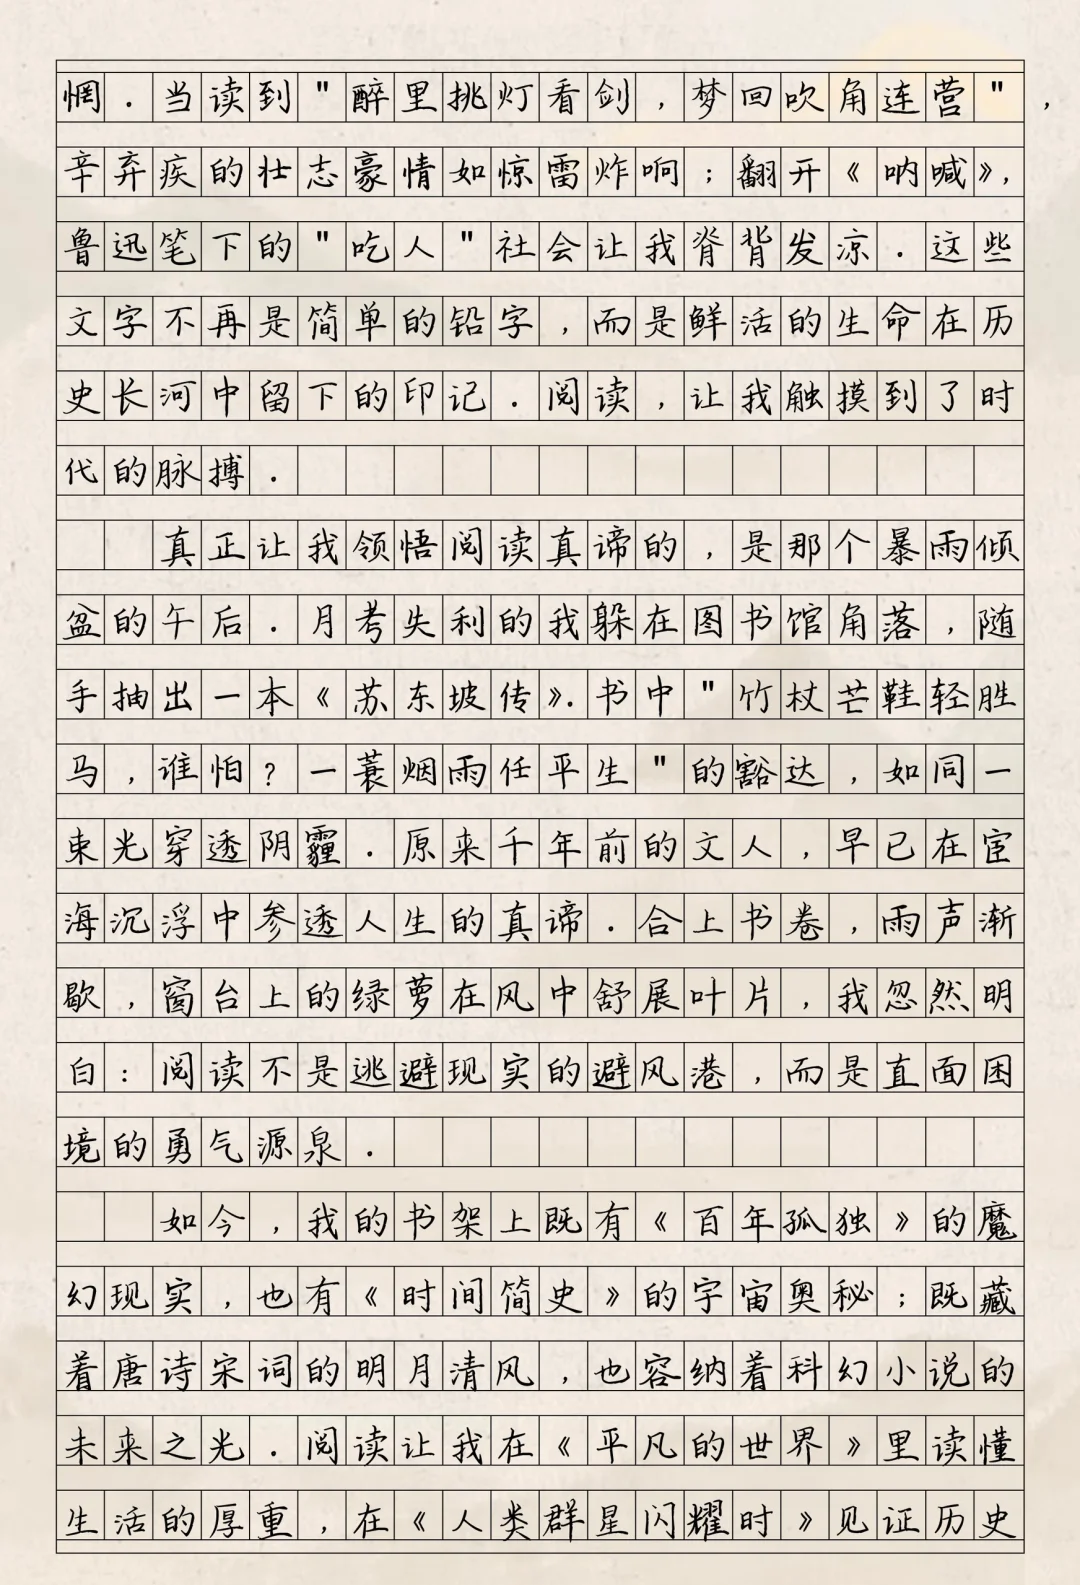 惘.当读到"醉里挑灯看剑,梦回吹角连营",
辛弃疾的壮志豪情如惊雷炸响;翻开《呐喊》,
鲁迅笔下的"吃人"社会让我脊背发凉.这些
文字不再是简单的铅字,而是鲜活的生命在历
史长河中留下的印记.阅读,让我触摸到了时
代的脉搏.
真正让我领悟阅读真谛的,是那个暴雨倾
盆的午后.月考失利的我躲在图书馆角落,随
手抽出一本《苏东坡传》.书中"竹杖芒鞋轻胜
马,谁怕?一蓑烟雨任平生"的豁达,如同一
束光穿透阴霾.原来千年前的文人,早已在宦
海沉浮中参透人生的真谛.合上书卷,雨声渐
歇,窗台上的绿萝在风中舒展叶片,我忽然明
白:阅读不是逃避现实的避风港,而是直面困
境的勇气源泉.
如今,我的书架上既有《百年孤独》的魔
幻现实,也有《时间简史》的宇宙奥秘;既藏
着唐诗宋词的明月清风,也容纳着科幻小说的
未来之光.阅读让我在《平凡的世界》里读懂
生活的厚重,在《人类群星闪耀时》见证历史